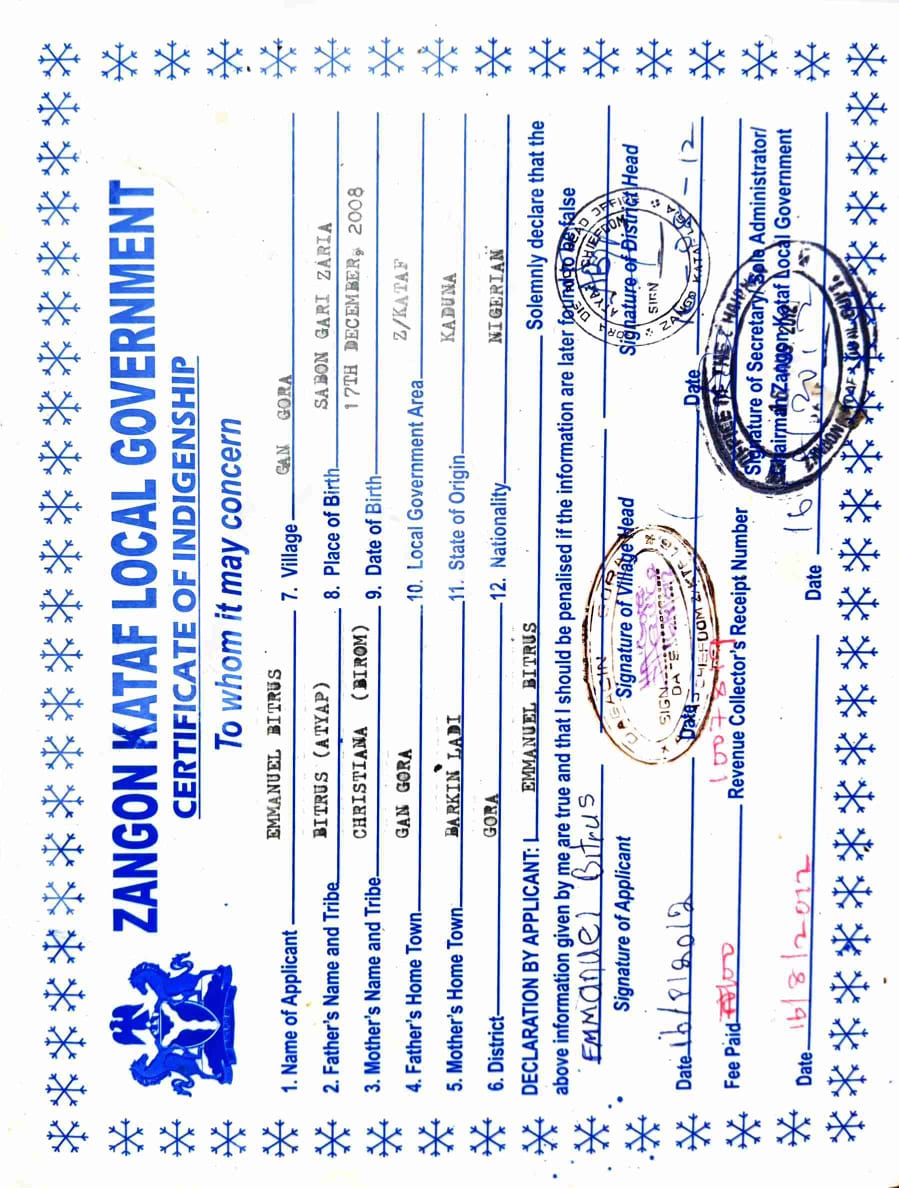 ZANGON KATAF LOCAL GOVERNMENT
CERTIFICATE OF INDIGENSHIP
To whom it may concern
1. Name of Applicant EMMANUEL BITRUS 7. Village GAN GORA
2. Father's Name and Tribe BITRUS (ATYAP) 8. Place of Birth SABON GARI ZARIA
3. Mother's Name and Tribe CHRISTIANA (BIROM) 9. Date of Birth 17TH DECEMBER, 2008
4. Father's Home Town GAN GORA 10. Local Government Area Z/KATAF
5. Mother's Home Town BARKIN LADI 11. State of Origin KADUNA
6. District GORA 12. Nationality NIGERIAN
DECLARATION BY APPLICANT: I EMMANUEL BITRUS Solemnly declare that the
above information given by me are true and that I should be penalised if the information are later found to be false
EMMANUEL BITRUS
Signature of Applicant Signature of Village Head Signature of District Head
SIGN
SIGN
Date 16/8/2012 Date Date
Fee Paid Revenue Collector's Receipt Number Signature of Secretary/Sole Administrator/
Chairman Zangon Kataf Local Government
Date 16/8/2012 Date